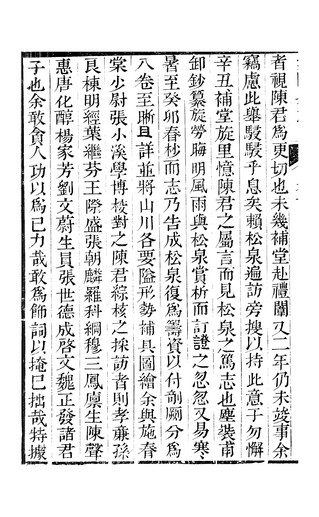 者視陳君爲更切也未幾補堂赴禮闈又二年仍未竣事余
竊慮此舉駸駸乎息矣賴松泉遍訪旁搜以持此意于勿懈
辛丑補堂旋里憶陳君之屬言而見松泉之篤志也塵裝甫
卸鈔纂旋勞晦明風雨與松泉賞析而訂證之忽忽又易寒
暑至癸卯春杪而志乃告成松泉復爲籌資以付剞劂分爲
八卷至晰且詳並將山川各要隘形勢補具圖繪余與施春
棠少尉張小溪學博校對之陳君綜核之採訪者則孝廉孫
艮棟明經葉繼芬王際盛張朝麟羅科綱穆三鳳廩生陳聲
惠唐化醇楊家芳劉文蔚生員張世德成啓文魏正發諸君
子也余敢貪人功以爲己力哉敢爲飾詞以掩己拙哉特據